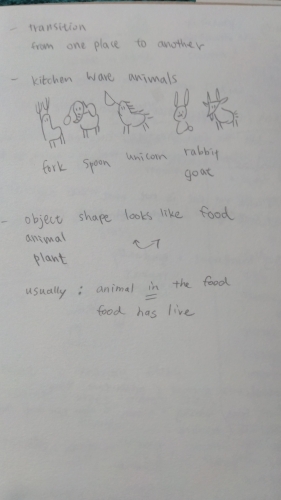 - transition
from one place to another
- kitchen ware animals
fork spoon unicorn rabbit
goat
- object shape looks like food
animal
plant
usually : animal in the food
food has live